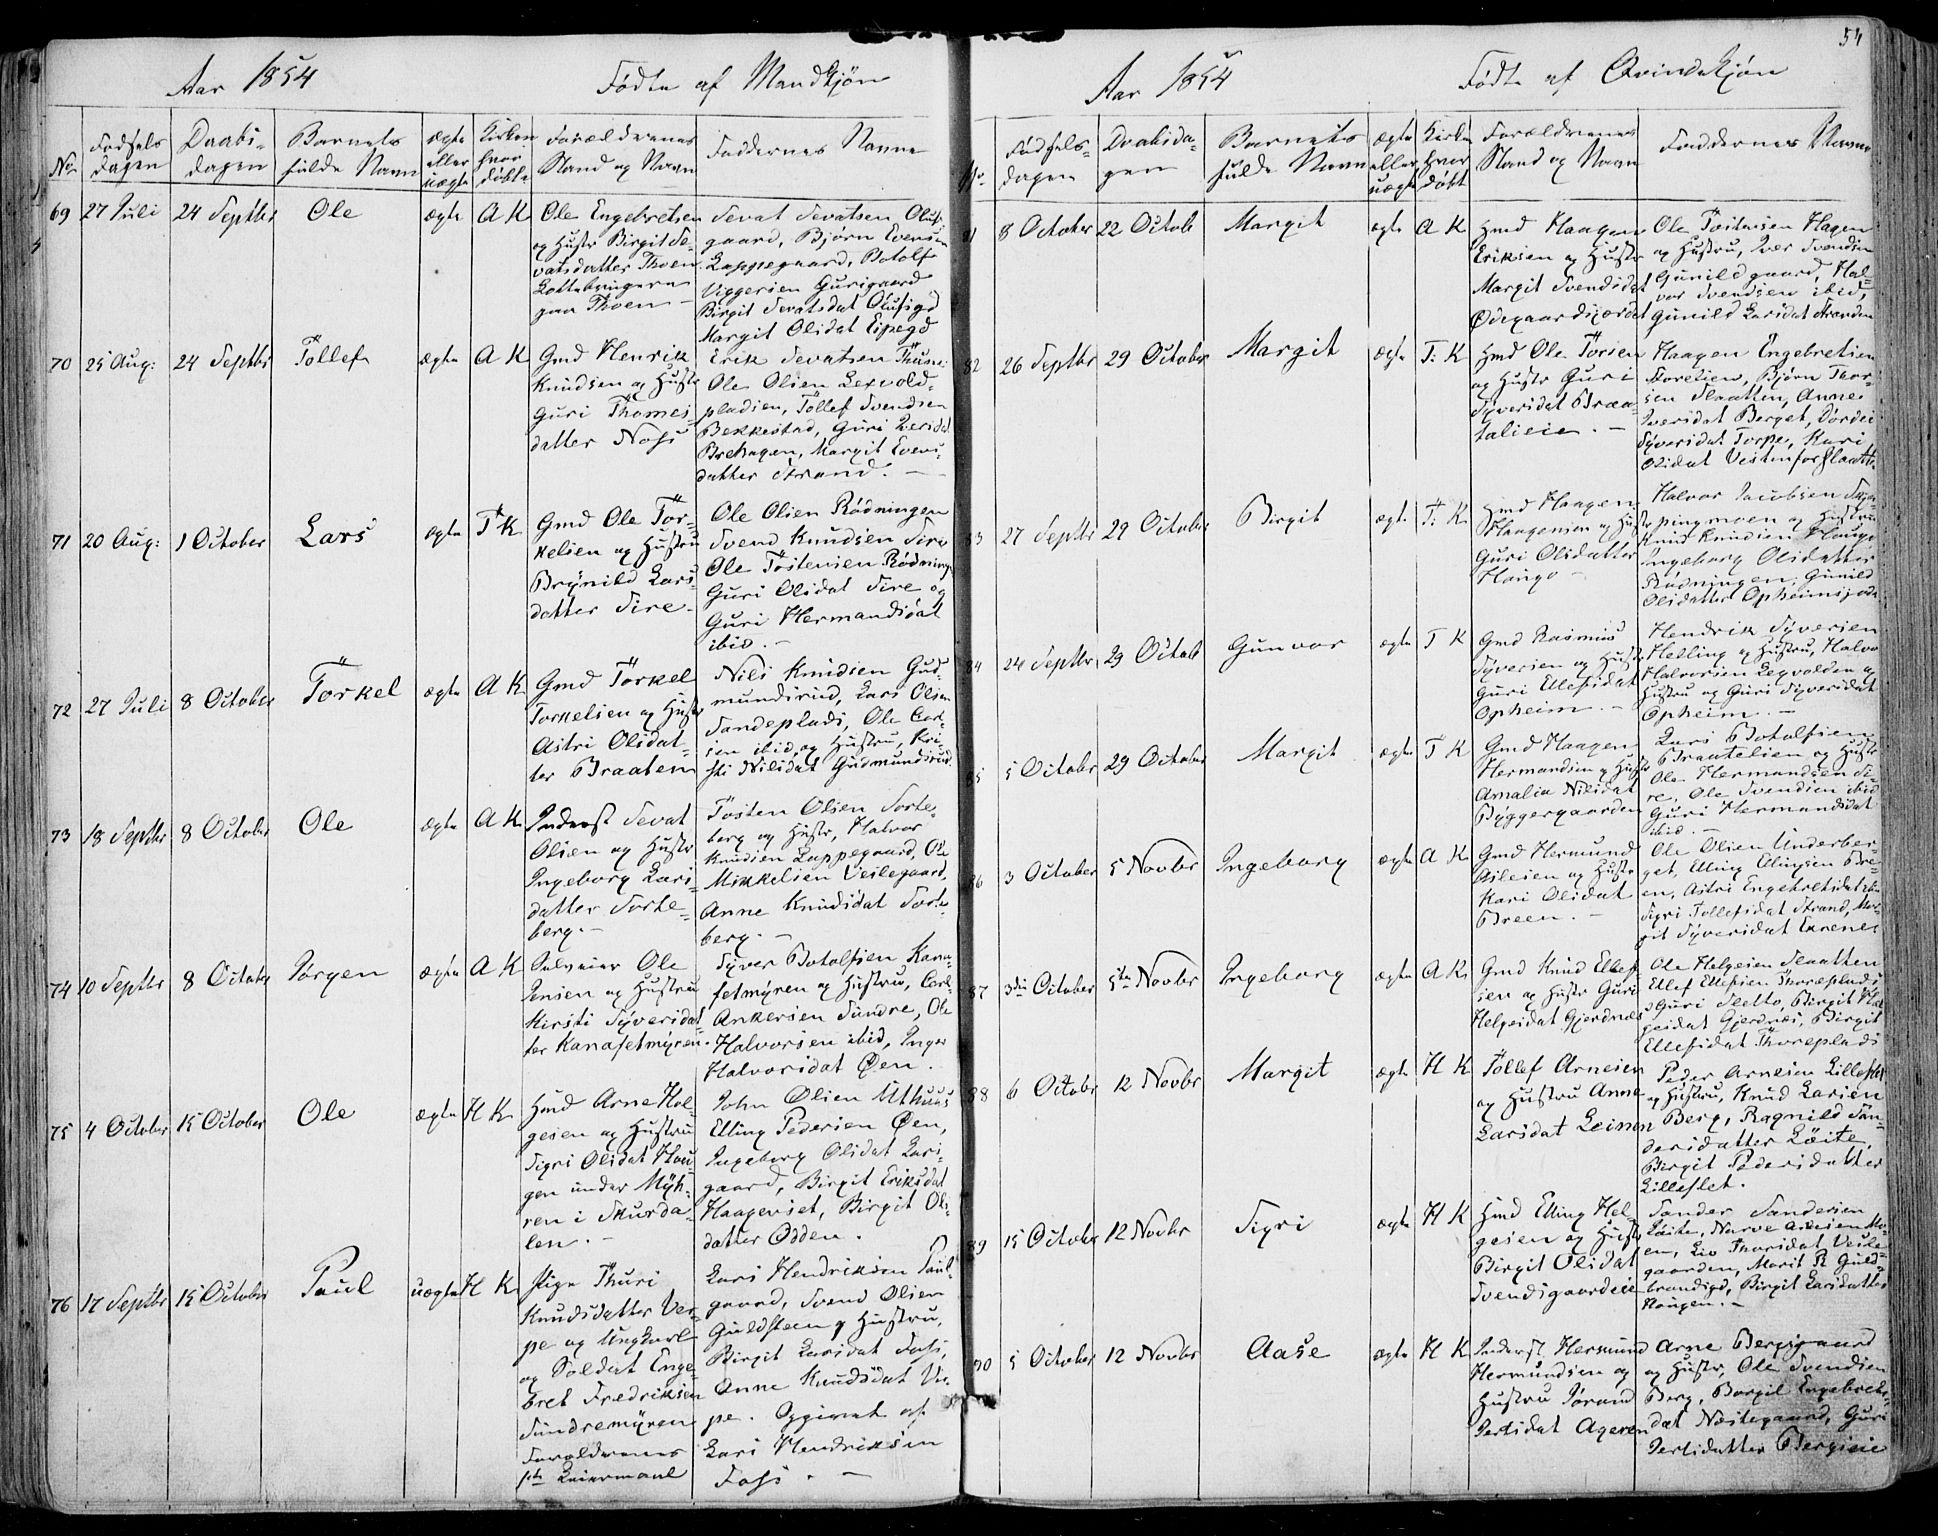 Aar 1854
Fødte af Mandkjøn
No
Fødsels
dagen
Daabs-
dagen
Barnets
fulde Navn
ægte
eller
uægte
Kirken
hvor
døbte
Forældrenes
Stand og Navn
Faddernes Navne
69 27 Juli 24 Septbr Ole ægte A K
Ole Engebretsen
og Hustr Birgit Se-
vatsdatter Thoen
gaa Thoen -
Sevat Sevatsen
gaard, Bjørn Evensen
Lappegaard, Botolf
Viggersen Gurigaard
Birgit Sevatsdat
Margit Olsdat
70 25 Aug: 24 Septbr Tollef ægte A K
Gmd Henrik
Knudsen og Hustr
Guri Thomes-
datter Noss
Erik Sevatsen
Ole Olsen Lexvold-
pladsen, Tollef Svendsen
Bekkestad, Guri Iversdat
Brehagen, Margit Evens-
datter Strand. -
71 20 Aug: 1 October Lars ægte T K
Gmd Ole Tor-
kelsen og Hustru
Brynild Lars-
datter Sire -
Ole Olsen Rødningen
Svend Knudsen Sire
Ole Tostensen Rødning
Guri Olsdat Sire og
Guri Hermandsdat
ibid. -
72 27 Juli 8 October Torkel ægte A K
Gmd Torkel
Torkelsen og Hustr
Astri Olsdat-
ter Braaten
Nils Knudsen Gud-
mundsrud, Lars Olsen
Sandeplads, Ole Carl-
sen ibid og Hustru, Kri-
sti Nilsdat Gudmundsrud
73 18 Septbr 8 October Ole ægte A K
Inderst Sevat
Olsen og Hustr
Ingeborg Lars-
datter Torte-
berg. -
Tosten Olsen Torte-
berg og Hustr, Halvor
Knudsen Lappegaard, Ole
Mikkelsen Veslegaard,
Anne Knudsdat Torte-
berg. -
74 10 Septbr 8 Octobr Jørgen ægte A K
Selveier Ole
Jensen og Hustru
Kirsti Syversdat-
ter Kanafetmyren.
Syver Botolfsen Kana-
fetmyren og Hustru, Carl
Ankersen Sundre, Ole
Halvorsen ibid, Inger
Halvorsdat Øen.
75 4 October 15 October Ole ægte H K
Hmd Arne Hel-
gesen og Hustru
Sigri Olsdat Hau-
gen under Myh-
ren i Skurda-
len. -
John Olsen Uthuus
Elling Pedersen Øen,
Ingeborg Olsdat Lars-
gaard, Birgit Eriksdat
Haageset, Birgit Ols-
datter Odden.
76 17 Septbr 15 October Paul uægte H K
Pige Thuri
Knudsdatter Ver-
pe og Ungkarl
og Soldat Enge-
bret Fredriksen
Sundremyren
Forældrenes
1ste Leiermaal
Lars Hendriksen Paul-
gaard, Svend Olsen
Guldsteen og Hustru,
Birgit Larsdat Foss,
Anne Knudsdat Ver-
pe. Opgivet af
Lars Hendriksen
Foss. -
54
Aar 1854
Fødte af Qvindekjøn
No.
Fødsels-
dagen
Daabsda-
gen
Barnets
fulde Navn
ægte
eller
uægte
Kirke
hvor
døbt
Forældrenes
Stand og Navn
Faddernes Navne
81 8 October 22 Octob Margit ægte A K
Hmd Haagen
Eriksen og Hustr
Margit Svendsdat
Ødegaardsjordet
Ole Tostensen Hagen
og Hustru, Iver Svendsen
Gunildgaard, Hal-
vor Svendsen ibid,
Gunild Larsdat Stranden
82 26 Septbr 29 October Margit ægte T: K
Hmd Ole Torsen
og Hustr Guri
Syversdat Braa-
talieie. -
Haagen Engebretsen
Bjørn Thor-
sen Slaatten, Anne
Iversdat Berget, Dordei
Syversdat Torpe, Kari
Olsdat Vestenfor Slaatte
83 27 Septbr 29 October Birgit ægte T: K
Gmd Haagen
Haagensen og Hustr
Guri Olsdatter
Haugo -
Halvor Jacobsen
og Hustru
Knud Knudsen Haugo
Ingeborg Olsdatter
Rødningen, Gunild
Olsdatter Opheimsjord
84 24 Septbr 29 Octob Gunvor ægte T K
Gmd Rasmus
Syversen og Hustr
Guri Ellefsdat
Opheim. -
Hendrik Syversen
Helling og Hustru, Halvo
Halvorsen Lexvolden og
Hustru og Guri Syversdat
Opheim. -
85 5 Octobr 29 October Margit ægte T K
Gmd Haagen
Hermandsen og Hustr
Amalia Nilsdat
Byggergaarden
Lars Botolfsen
Braatelien og Hustr
Ole Hermandsen Si-
re, Ole Svendsen ibid
Guri Hermandsdat
ibid. -
86 3 October 5 Novbr Ingeborg ægte A K
Gmd Hermund
Asleien og Hustr
Kari Olsdat
Breen. -
Ole Olsen Underber-
get, Elling Ellingsen Bre-
en, Astri Engebretsdat ibid
Sigri Tollefsdat Strand, Mar-
git Syversdat
87 3die October 5te Novbr Ingeborg ægte A K
Gmd Knud Ellef-
sen og Hustr Guri
Helgesdat Gjerdnæs
Ole Helgesen Slaatten
Ellef Ellefsen Thoreplads
Guri Sletto, Birgit Hel-
gesdat Gjerdnæs, Birgit
Ellefsdat Thoreplads
88 6 Octobr 12 Novbr Margit ægte H K
Tollef Arnesen
og Hustru Anne
Larsdat Leinen
Peder Arnesen Lilleslet
og Hustru, Knud Larsen
Berg, Ragnild San-
dersdatter Løite,
Birgit Pedersdatter
Lilleslet.
89 15 October 12 Novbr Sigri ægte H K
Hmd Elling Hel-
gesen og Hustr
Birgit Olsdat
Svendsgaardeie
Sander Sandersen
Løite, Narve Arnesen Mo-
en, Liv Thorsdat Vesle-
gaarden, Marit R. Guld-
brandsgd, Birgit Larsdatter
Haugen. -
90 5 October 12 Novbr Aase ægte H K
Inderst Hermund
Hermundsen og
Hustru Jørand
Persdat Ageren
Arne Bergsgaard
og Hustr, Ole Svendsen
Berg, Borgil Engebrets-
dat Næstegaard, Guri
Persdatter Bergseie